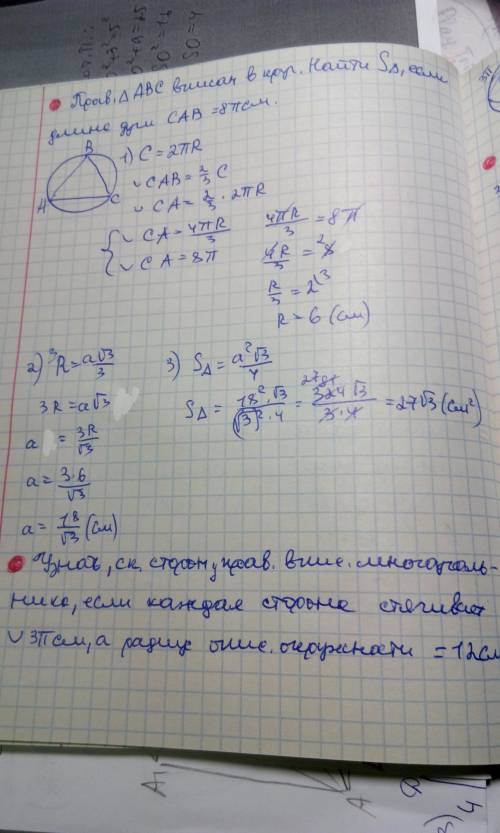 Прав. Δ ABC вписан в окр. Найти SΔ, если
длина дуги CAB = 8π см.
B
A
C
1) C = 2πR
◡ CAB = 2/3 C
◡ CA = 2/3 · 2πR
{ ◡ CA = 4πR/3
◡ CA = 8π
4πR/3 = 8π
4R/3 = 8 2
R/3 = 2 \3
R = 6 (см)
2) 3 R = a√3/3
3R = a√3
a = 3R/√3
a = 3·6/√3
a = 18/√3 (см)
3) SΔ = a²√3/4
SΔ = 18²·√3/(√3)²·4 = 324√3/3·4 = 27√3 (см²)
Узнать, ск. сторон у прав. впис. многоуголь-
ника, если каждая сторона стягивает
◡ 3π см, а радиус опис. окружности = 12 см
SO = 4
A₁
A